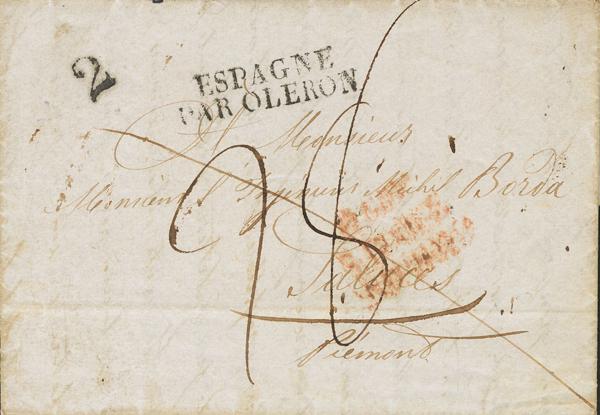 2
ESPAGNE
PAR OLERON
A Monsieur
Monsieur l'Ingénieur Michel Borda
Saluces
Piemont